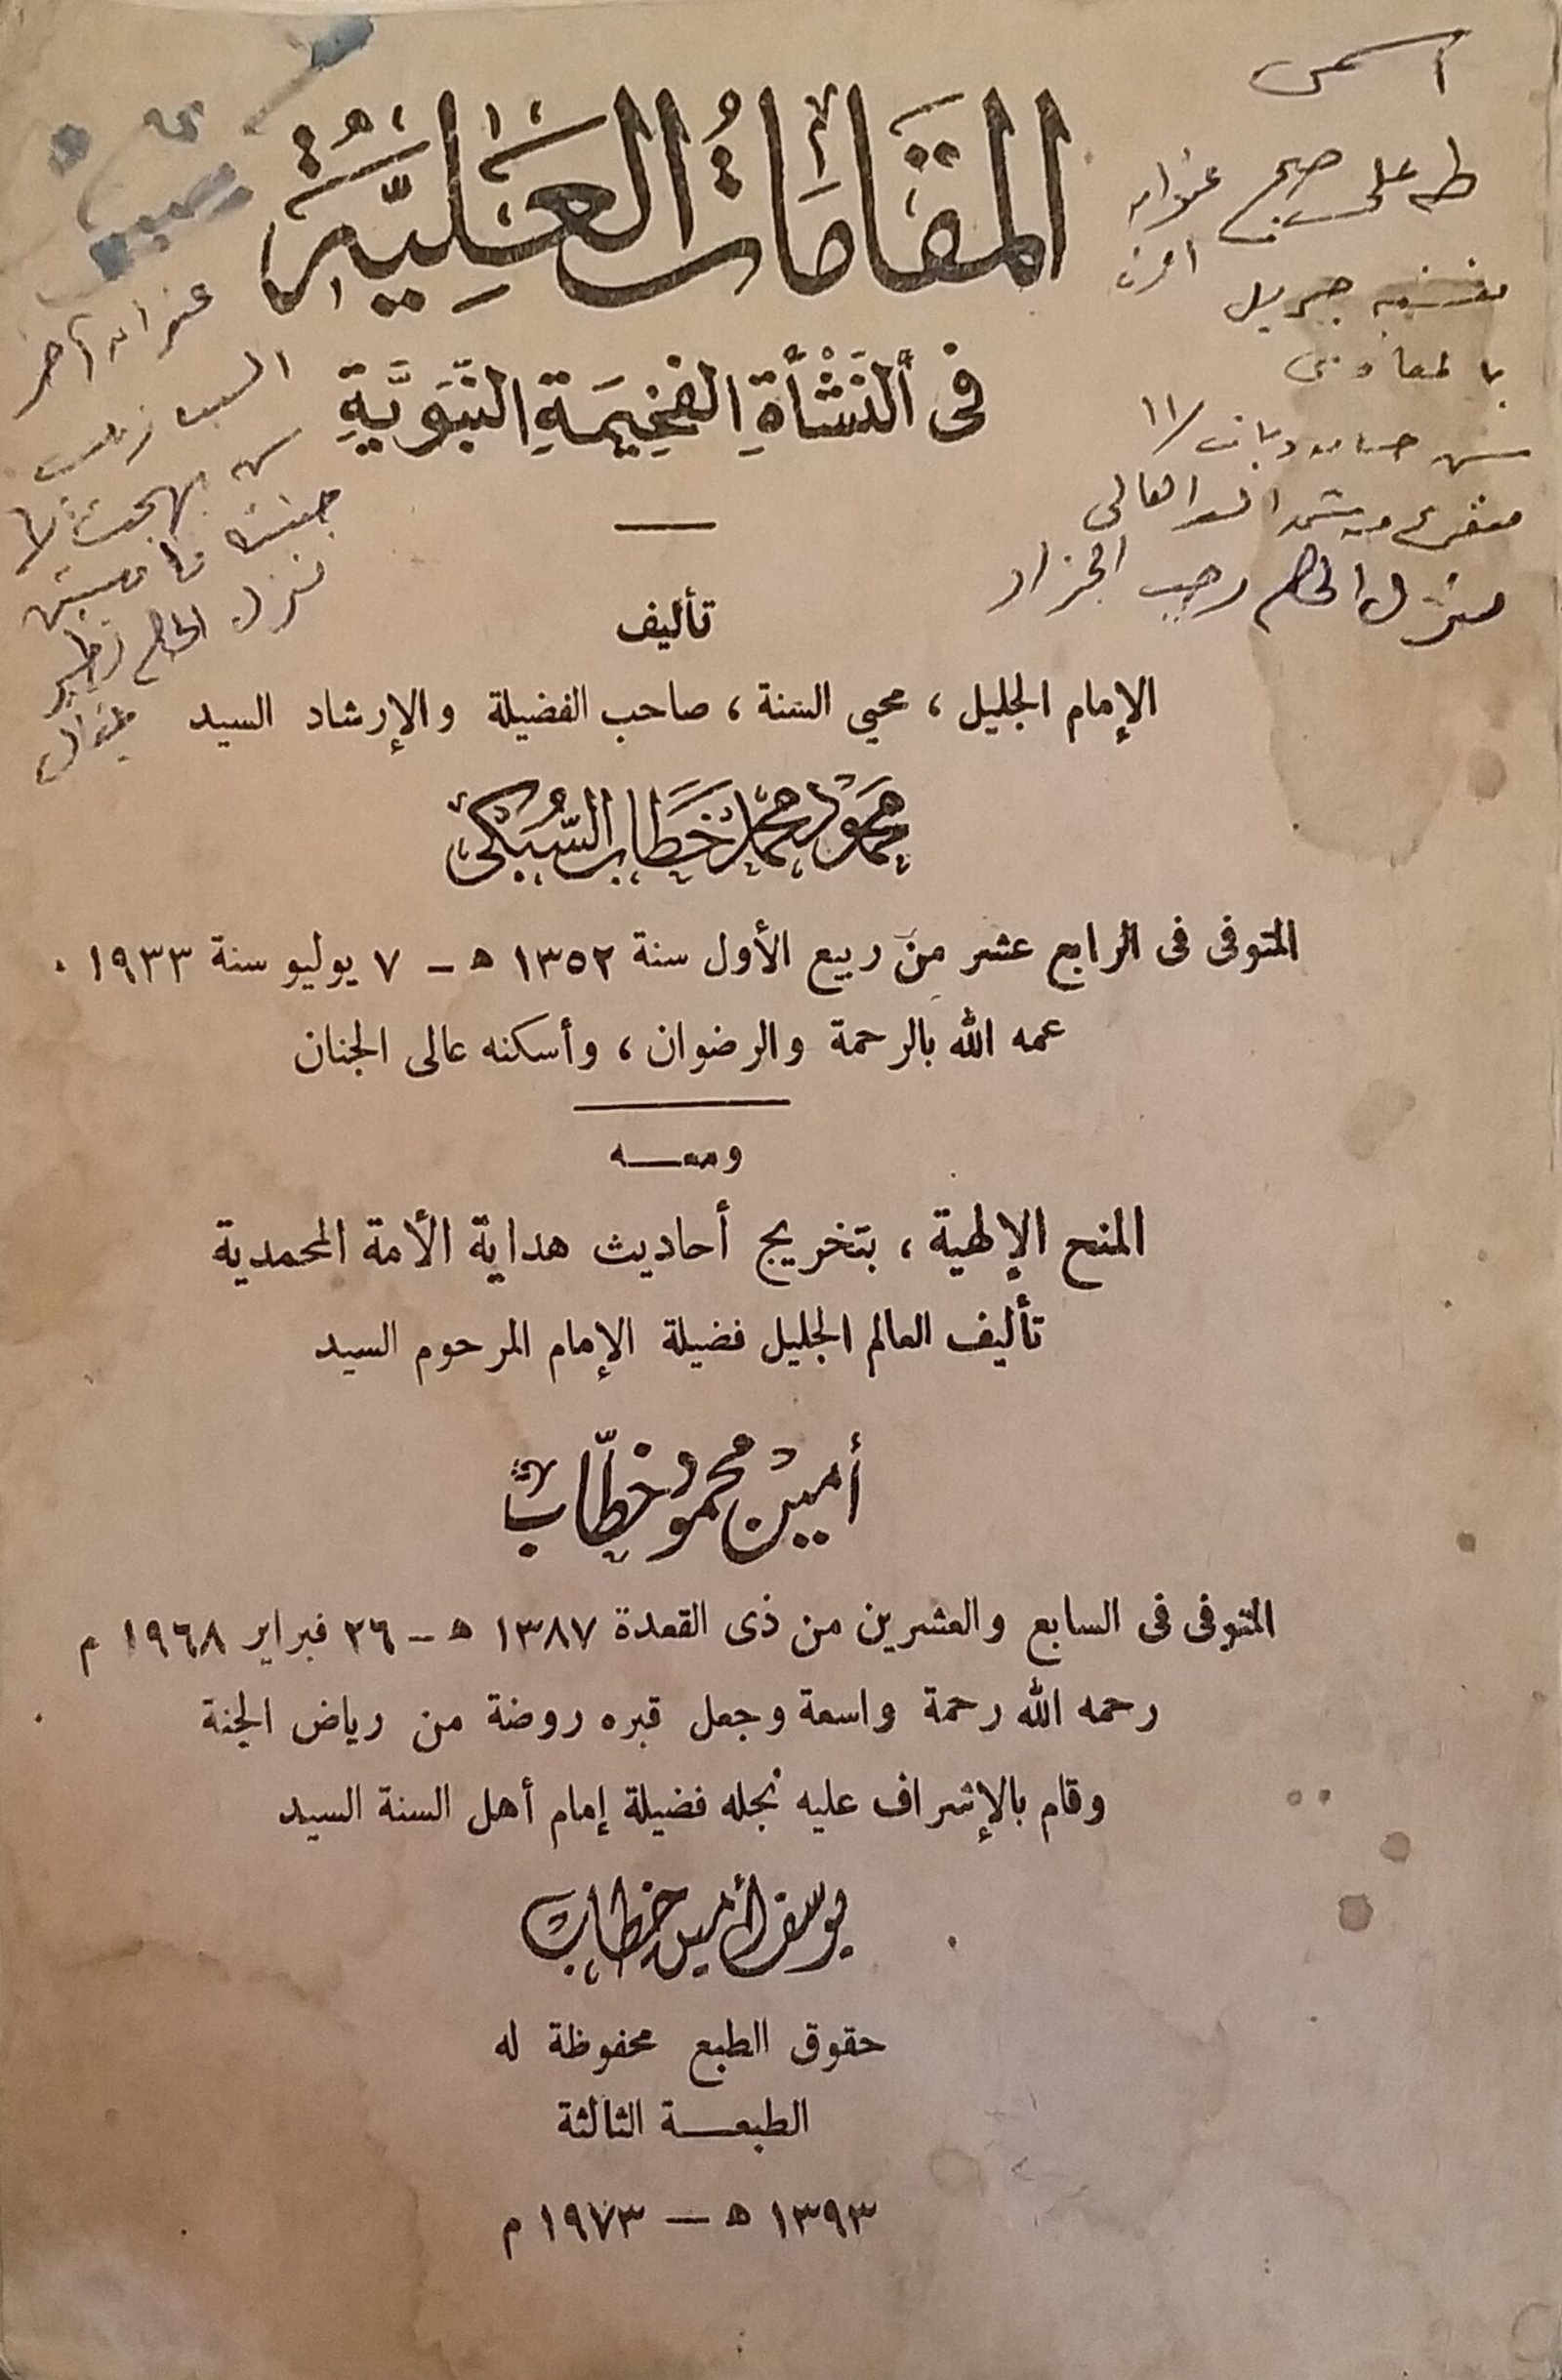 المقَامَاتُ العَليَّةُ
فى النَشْأَةِ الفَخِيمَةِ النَّبَوَيَّةِ
تأليف
الإمام الجليل ، محيي السنة ، صاحب الفضيلة والإرشاد السيد
محمود محمد خطاب السُّبكى
المتوفى فى الرابع عشر من ربيع الأول سنة ١٣٥٢ ه – ٧ يوليو سنة ١٩٣٣ .
عمه الله بالرحمة والرضوان ، وأسكنه عالى الجنان
ومعـــه
المنح الإلهية ، بتخريج أحاديث هداية الأمة المحمدية
تأليف العالم الجليل فضيلة الإمام المرحوم السيد
أمين محمود خطّاب
المتوفى فى السابع والعشرين من ذى القعدة ١٣٨٧ ه – ٢٦ فبراير ١٩٦٨ م
رحمه الله رحمة واسعة وجعل قبره روضة من رياض الجنة
وقام بالإشراف عليه نجله فضيلة إمام أهل السنة السيد
يوسف أمين خطاب
حقوق الطبع محفوظة له
الطبعـــة الثالثة
١٣٩٣ ه – ١٩٧٣ م
اسمى
طه على صبح عنوان
جبريل
منزل الحاج رجب الجزار
عنوان آخر
السيد زينب